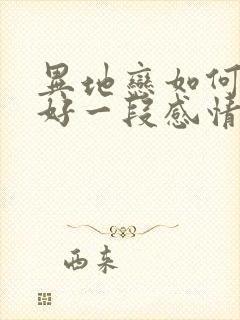 異地戀如何
好一段感情
西来